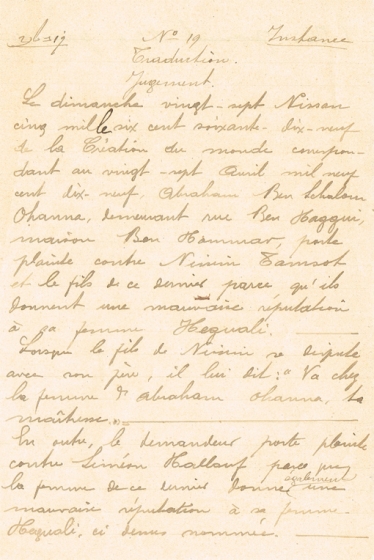 No 19 Instance
Traduction.
Jugement.
Le dimanche vingt-sept Nissan
cinq mille six cent soixante-dix-neuf
de la Création du monde correspon-
dant au vingt-sept Avril mil neuf
cent dix-neuf, Abraham Ben Schaloum
Ohanna, demeurant rue Ben Haqqui,
maison Ben Hammar, porte
plainte contre Nissim Tamsot
et le fils de ce dernier parce qu'ils
donnent une mauvaise réputation
à sa femme Hequali.
Lorsque le fils de Nissim se dispute
avec son père, il lui dit: "Va chez
la femme d'Abraham Ohanna, ta
maîtresse."
En outre, le demandeur porte plainte
contre Siméon Hallouf parce que
la femme de ce dernier donne également une
mauvaise réputation à sa femme
Hequali, ci-dessus nommée.